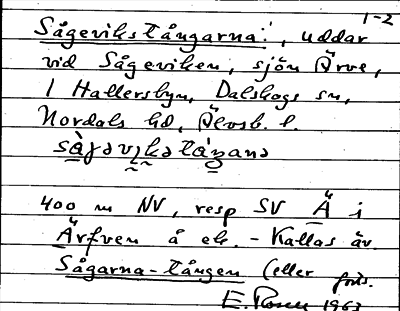 1-2
Sågevikstångarna:', uddar
vid Sågeviken, sjön Ärve,
i Hallersbyn, Dalskogs sn,
Nordals hd, Älvsb. l.
400 m NV, resp SV Ä i
Ärfven å ek. - Kallas äv.
Sågarna-tången (eller forts.
E. 1963